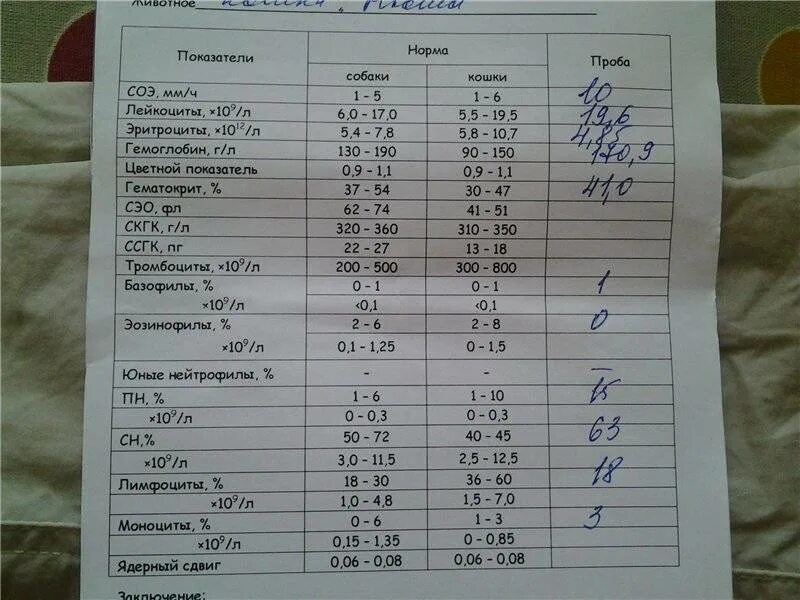 Животное кошка
Показатели Норма Проба
собаки кошки
СОЭ, мм/ч 1 - 5 1 - 6 10
Лейкоциты, ×10⁹/л 6,0 - 17,0 5,5 - 19,5 19,6
Эритроциты, ×10¹²/л 5,4 - 7,8 5,8 - 10,7 4,85
Гемоглобин, г/л 130 - 190 90 - 150 170,9
Цветной показатель 0,9 - 1,1 0,9 - 1,1
Гематокрит, % 37 - 54 30 - 47 41,0
СЭО, фл 62 - 74 41 - 51
СКГК, г/л 320 - 360 310 - 350
ССГК, пг 22 - 27 13 - 18
Тромбоциты, ×10⁹/л 200 - 500 300 - 800
Базофилы, % 0 - 1 0 - 1 1
×10⁹/л <0,1 <0,1
Эозинофилы, % 2 - 6 2 - 8 0
×10⁹/л 0,1 - 1,25 0 - 1,5
Юные нейтрофилы, % - - –
ПН, % 1 - 6 1 - 10 15
×10⁹/л 0 - 0,3 0 - 0,3
СН,% 50 - 72 40 - 45 63
×10⁹/л 3,0 - 11,5 2,5 - 12,5
Лимфоциты, % 18 - 30 36 - 60 18
×10⁹/л 1,0 - 4,8 1,5 - 7,0
Моноциты, % 0 - 6 1 - 3 3
×10⁹/л 0,15 - 1,35 0 - 0,85
Ядерный сдвиг 0,06 - 0,08 0,06 - 0,08
Заключение: